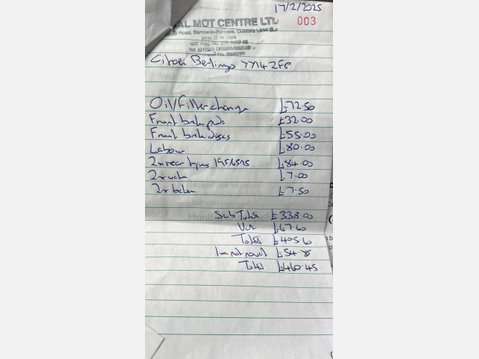 17/2/2025
AL MOT CENTRE LTD
003
Road, Barrow-in-Furness, Cumbria
VAT Reg No.
Citroen Berlingo YY14 ZFC
Oil/Filter change £72.50
Front brake pads £32.00
Front brake discs £55.00
Labour £80.00
2x rear tyres 1956515 £84.00
2x valve £7.00
2x balance £7.50
Sub Total £338.00
Vat £67.60
Total £405.60
£54.85
Total £460.45